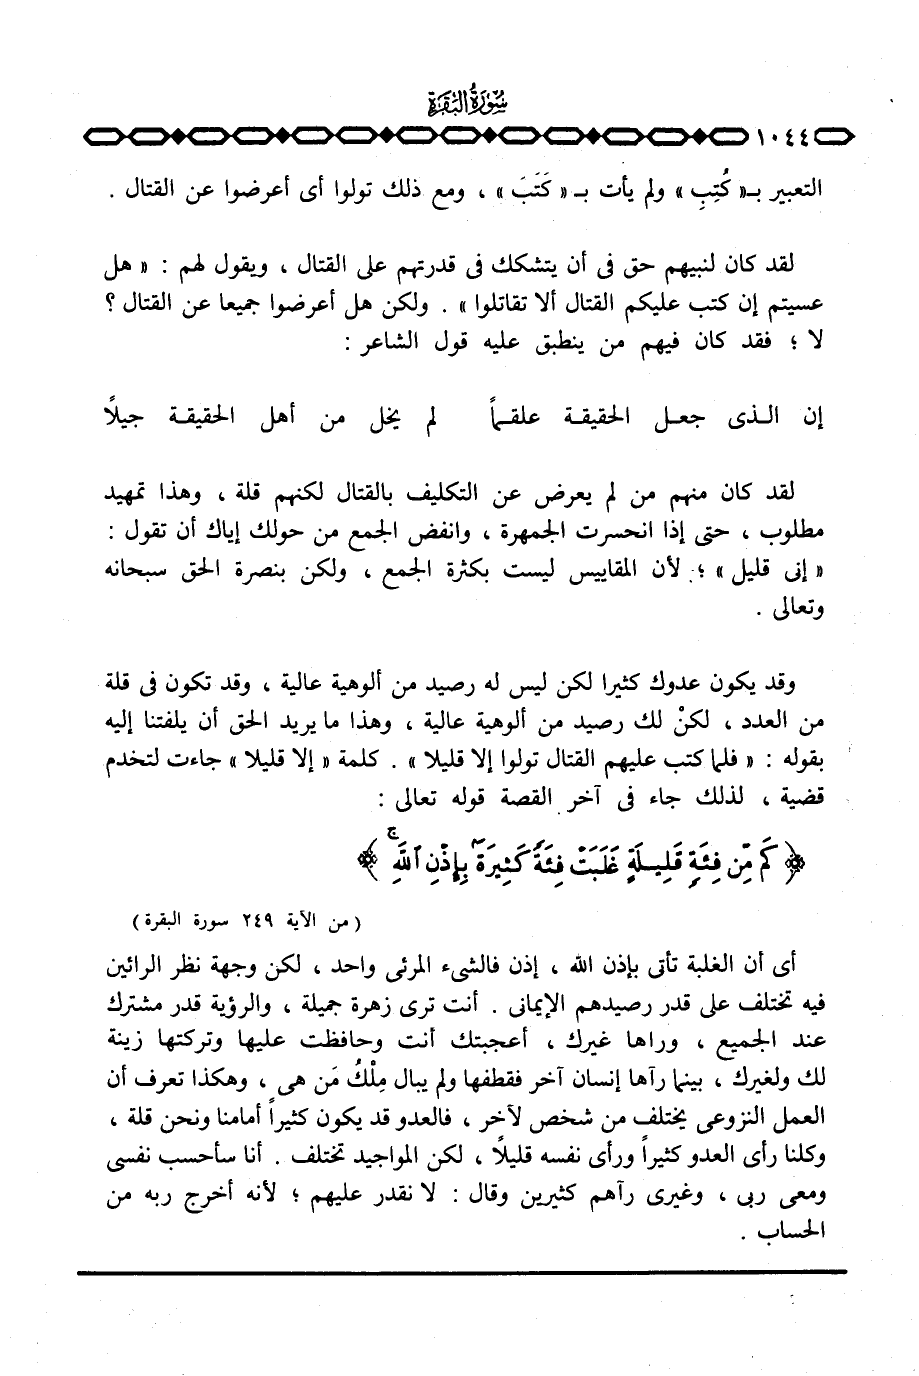 سورة البقرة
١٠٤٤
التعبير بـ« كُتِبِ » ولم يأت بـ « كَتَبَ » ، ومع ذلك تولوا أى أعرضوا عن القتال .
لقد كان لنبيهم حق فى أن يتشكك فى قدرتهم على القتال ، ويقول لهم : « هل
عسيتم إن كتب عليكم القتال ألا تقاتلوا » . ولكن هل أعرضوا جميعا عن القتال ؟
لا ؛ فقد كان فيهم من ينطبق عليه قول الشاعر :
إن الـذى جعـل الحقيقـة علقـماً لم يخل من أهل الحقيقـة جيلاً
لقد كان منهم من لم يعرض عن التكليف بالقتال لكنهم قلة ، وهذا تمهيد
مطلوب ، حتى إذا انحسرت الجمهرة ، وانفض الجمع من حولك إياك أن تقول :
« إنى قليل » ؛ لأن المقاييس ليست بكثرة الجمع ، ولكن بنصرة الحق سبحانه
وتعالى .
وقد يكون عدوك كثيرا لكن ليس له رصيد من ألوهية عالية ، وقد تكون فى قلة
من العدد ، لكنْ لك رصيد من ألوهية عالية ، وهذا ما يريد الحق أن يلفتنا إليه
بقوله : « فلما كتب عليهم القتال تولوا إلا قليلا » . كلمة « إلا قليلا » جاءت لتخدم
قضية ، لذلك جاء فى آخر القصة قوله تعالى :
﴿ كَم مِّن فِئَةٍ قَلِيلَةٍ غَلَبَتْ فِئَةً كَثِيرَةَۢ بِإِذْنِ ٱللَّهِ ۚ ﴾
( من الآية ٢٤٩ سورة البقرة )
أى أن الغلبة تأتى بإذن الله ، إذن فالشىء المرئى واحد ، لكن وجهة نظر الرائين
فيه تختلف على قدر رصيدهم الإيمانى . أنت ترى زهرة جميلة ، والرؤية قدر مشترك
عند الجميع ، وراها غيرك ، أعجبتك أنت وحافظت عليها وتركتها زينة
لك ولغيرك ، بينما رآها إنسان آخر فقطفها ولم يبال مِلْكُ مَن هى ، وهكذا تعرف أن
العمل النزوعى يختلف من شخص لآخر ، فالعدو قد يكون كثيراً أمامنا ونحن قلة ،
وكلنا رأى العدو كثيراً ورأى نفسه قليلاً ، لكن المواجيد تختلف . أنا سأحسب نفسى
ومعى ربى ، وغيرى رآهم كثيرين وقال : لا نقدر عليهم ؛ لأنه أخرج ربه من
الحساب .